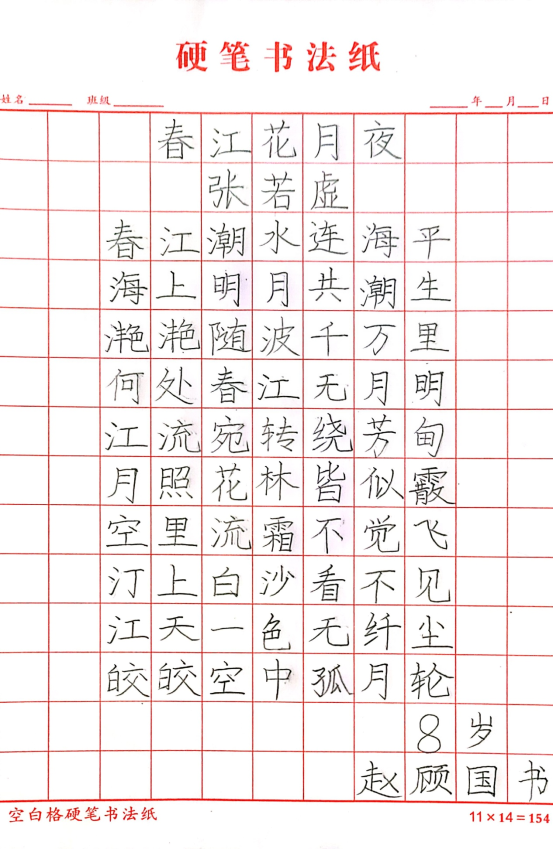 硬笔书法纸
姓名 班级 年 月 日
春江花月夜
张若虚
春江潮水连海平
海上明月共潮生
滟滟随波千万里
何处春江无月明
江流宛转绕芳甸
月照花林皆似霰
空里流霜不觉飞
汀上白沙看不见
江天一色无纤尘
皎皎空中孤月轮
8岁
赵顾国书
空白格硬笔书法纸 11×14=154